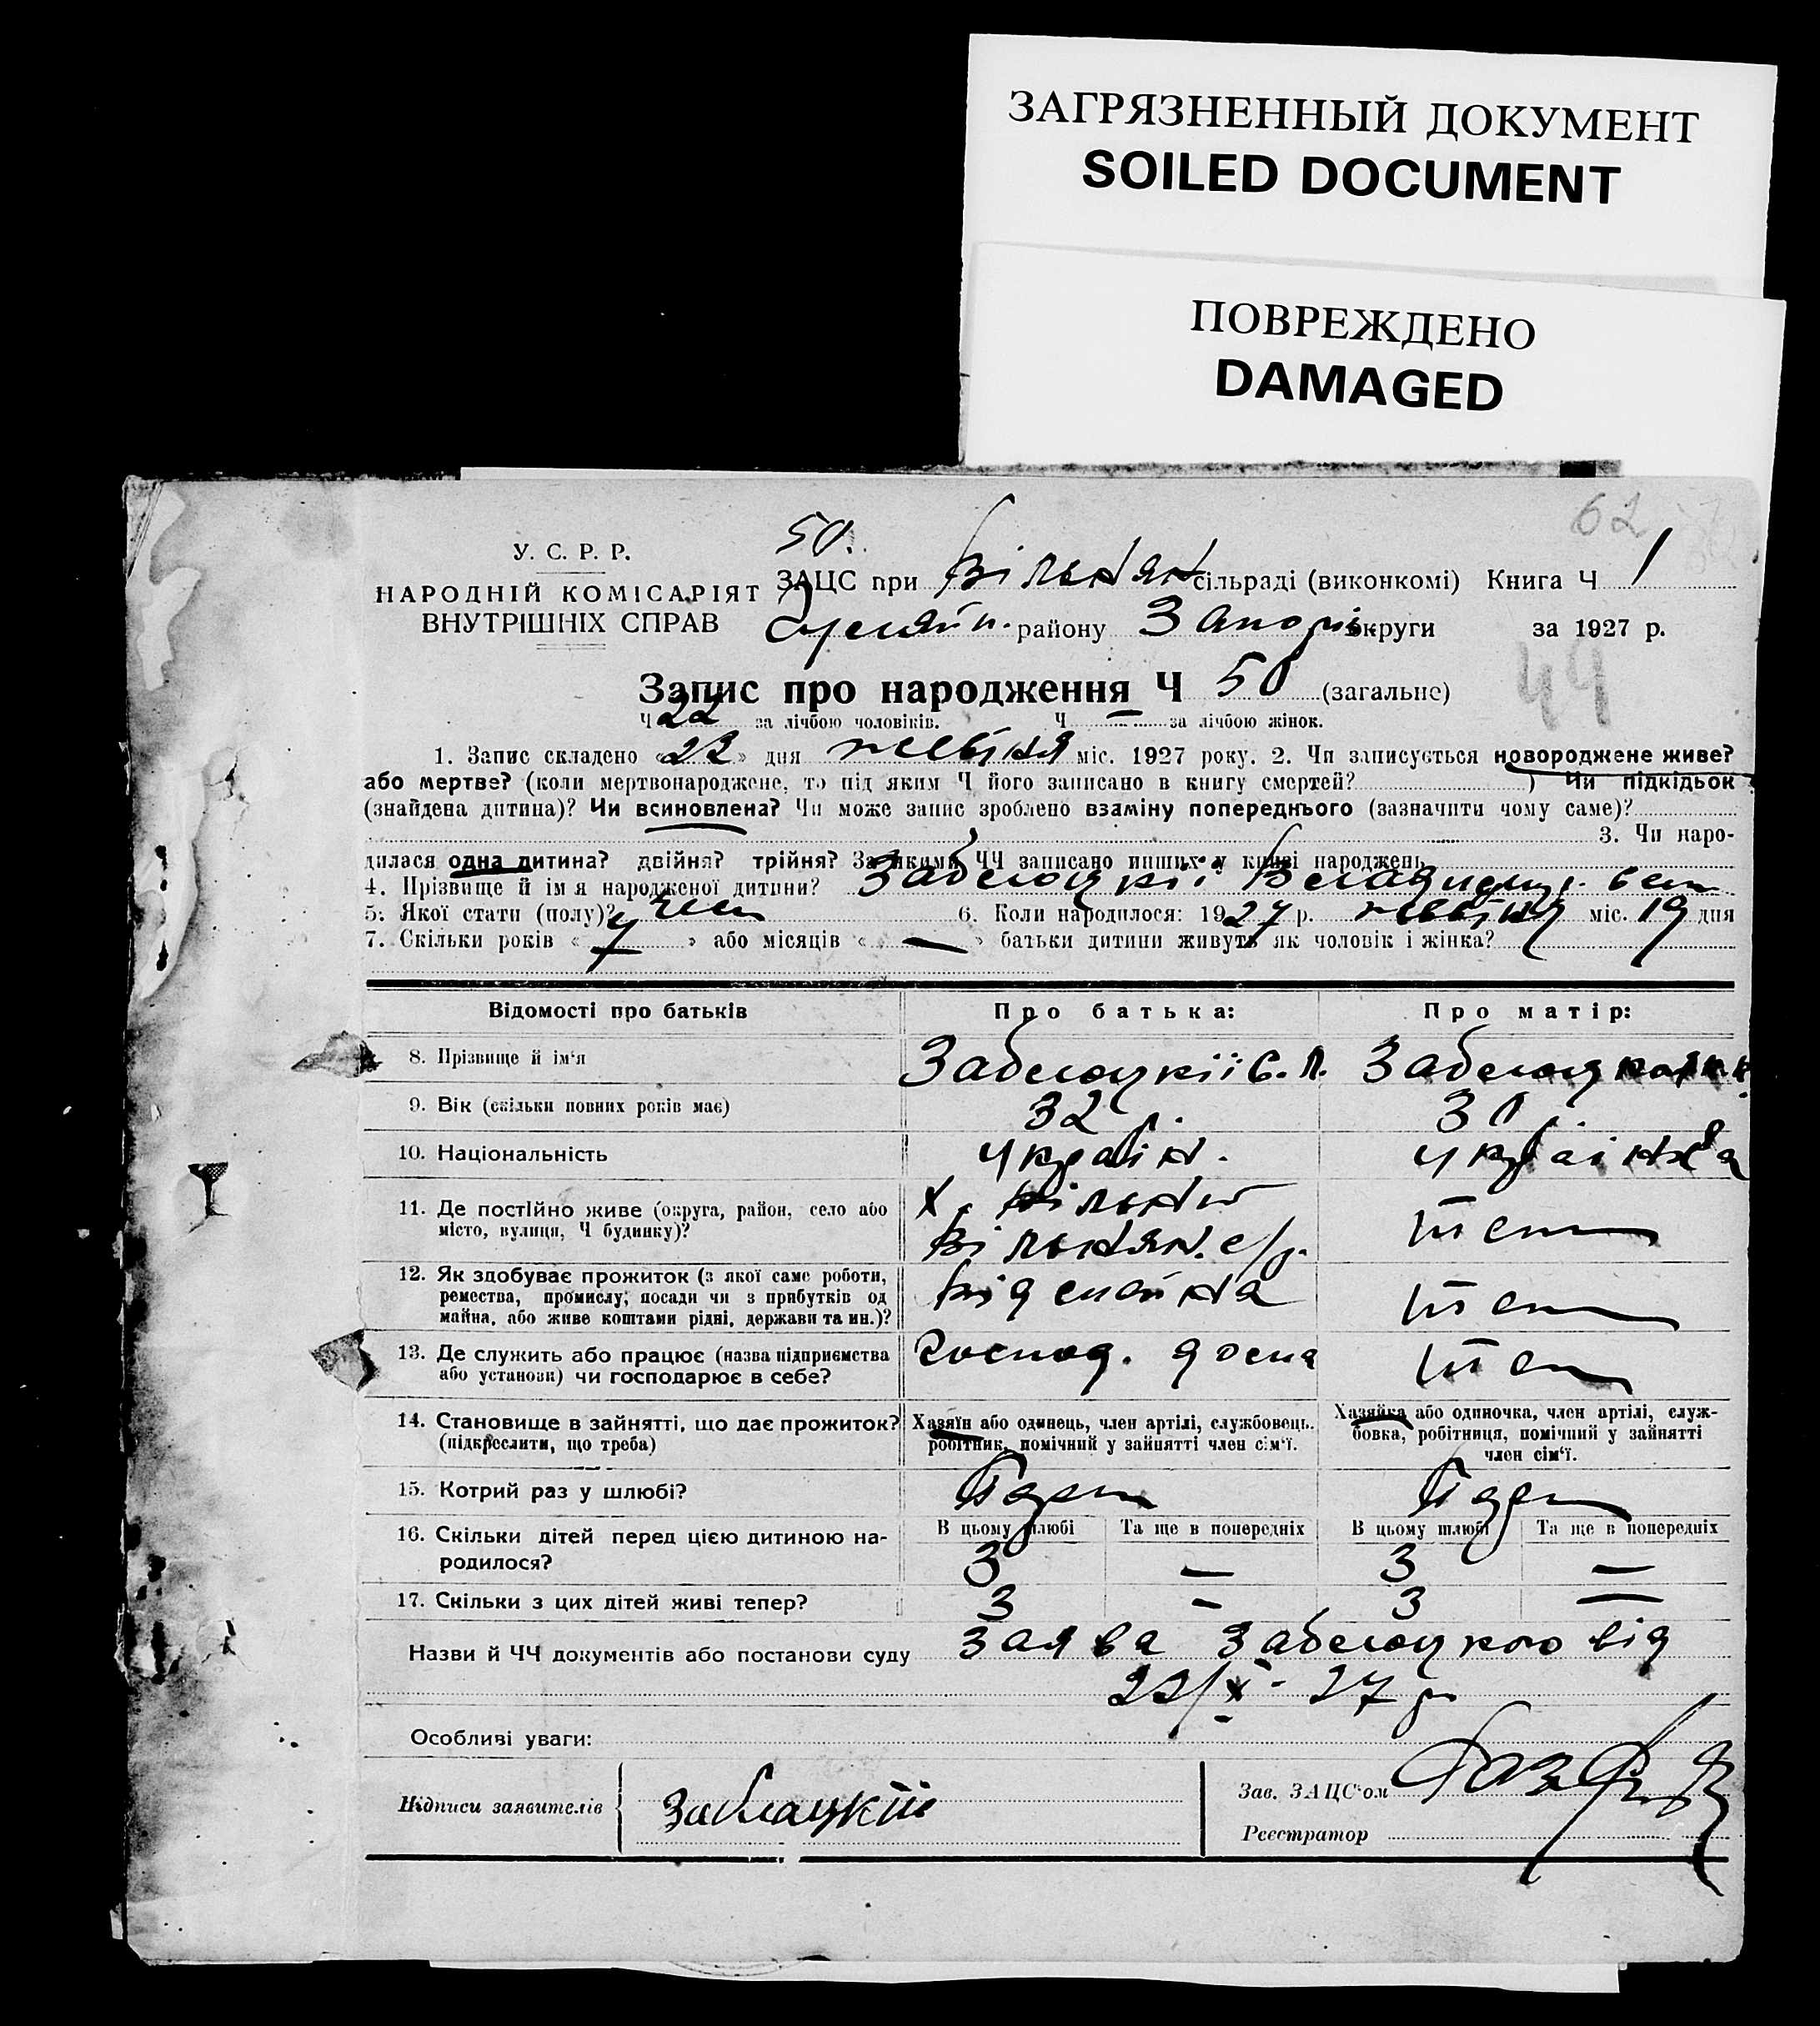 ЗАГРЯЗНЕННЫЙ ДОКУМЕНТ
SOILED DOCUMENT
ПОВРЕЖДЕНО
DAMAGED
62
У. С. Р. Р.
НАРОДНІЙ КОМІСАРІЯТ
ВНУТРІШНІХ СПРАВ
50.
ЗАЦС при Вільнян сільраді (виконкомі) Книга Ч 1
району Запоріз. округи за 1927 р.
49
Запис про народження Ч 50 (загальне)
Ч 22 за лічбою чоловіків. Ч — за лічбою жінок.
1. Запис складено «22» дня жовтня міс. 1927 року. 2. Чи записується новороджене живе?
або мертве? (коли мертвонароджене, то під яким Ч його записано в книгу смертей? ) Чи підкідьок
(знайдена дитина)? Чи всиновлена? Чи може запис зроблено взаміну попереднього (зазначити чому саме)?
3. Чи наро-
дилася одна дитина? двійня? трійня? За якими ЧЧ записано инших у книзі народжень
4. Прізвище й імя народженої дитини? Заблоцкіі
5. Якої стати (полу)? Чол 6. Коли народилося: 1927 р. жовтня міс. 19 дня
7. Скільки років « 7 » або місяців « — » батьки дитини живуть як чоловік і жінка?
Відомості про батьків Про батька: Про матір:
8. Прізвище й ім'я Заблоцкіі С. П. Заблоцкая
9. Вік (скільки повних років має) 32 р. 30 р.
10. Національність україн. українка
11. Де постійно живе (округа, район, село або
місто, вулиця, Ч будинку)?
х. Вільний
Вільнян. с/р.
теж
12. Як здобуває прожиток (з якої саме роботи,
ремества, промислу, посади чи з прибутків од
майна, або живе коштами рідні, держави та ин.)?
теж
13. Де служить або працює (назва підприємства
або установи) чи господарює в себе?
господ. дома
теж
14. Становище в зайнятті, що дає прожиток?
(підкреслити, що треба)
Хазяїн або одинець, член артілі, службовець.
робітник, помічний у зайнятті член сім'ї.
Хазяйка або одиночка, член артілі, служ-
бовка, робітниця, помічний у зайнятті
член сім'ї.
15. Котрий раз у шлюбі?
В цьому шлюбі Та ще в попередніх В цьому шлюбі Та ще в попередніх
16. Скільки дітей перед цією дитиною на-
родилося?
3 — 3 —
17. Скільки з цих дітей живі тепер? 3 — 3 —
Назви й ЧЧ документів або постанови суду Заява Заблоцкого від
22/X - 27 р
Особливі уваги:
Підписи заявителів Заблацкій
Зав. ЗАЦС'ом
Реєстратор